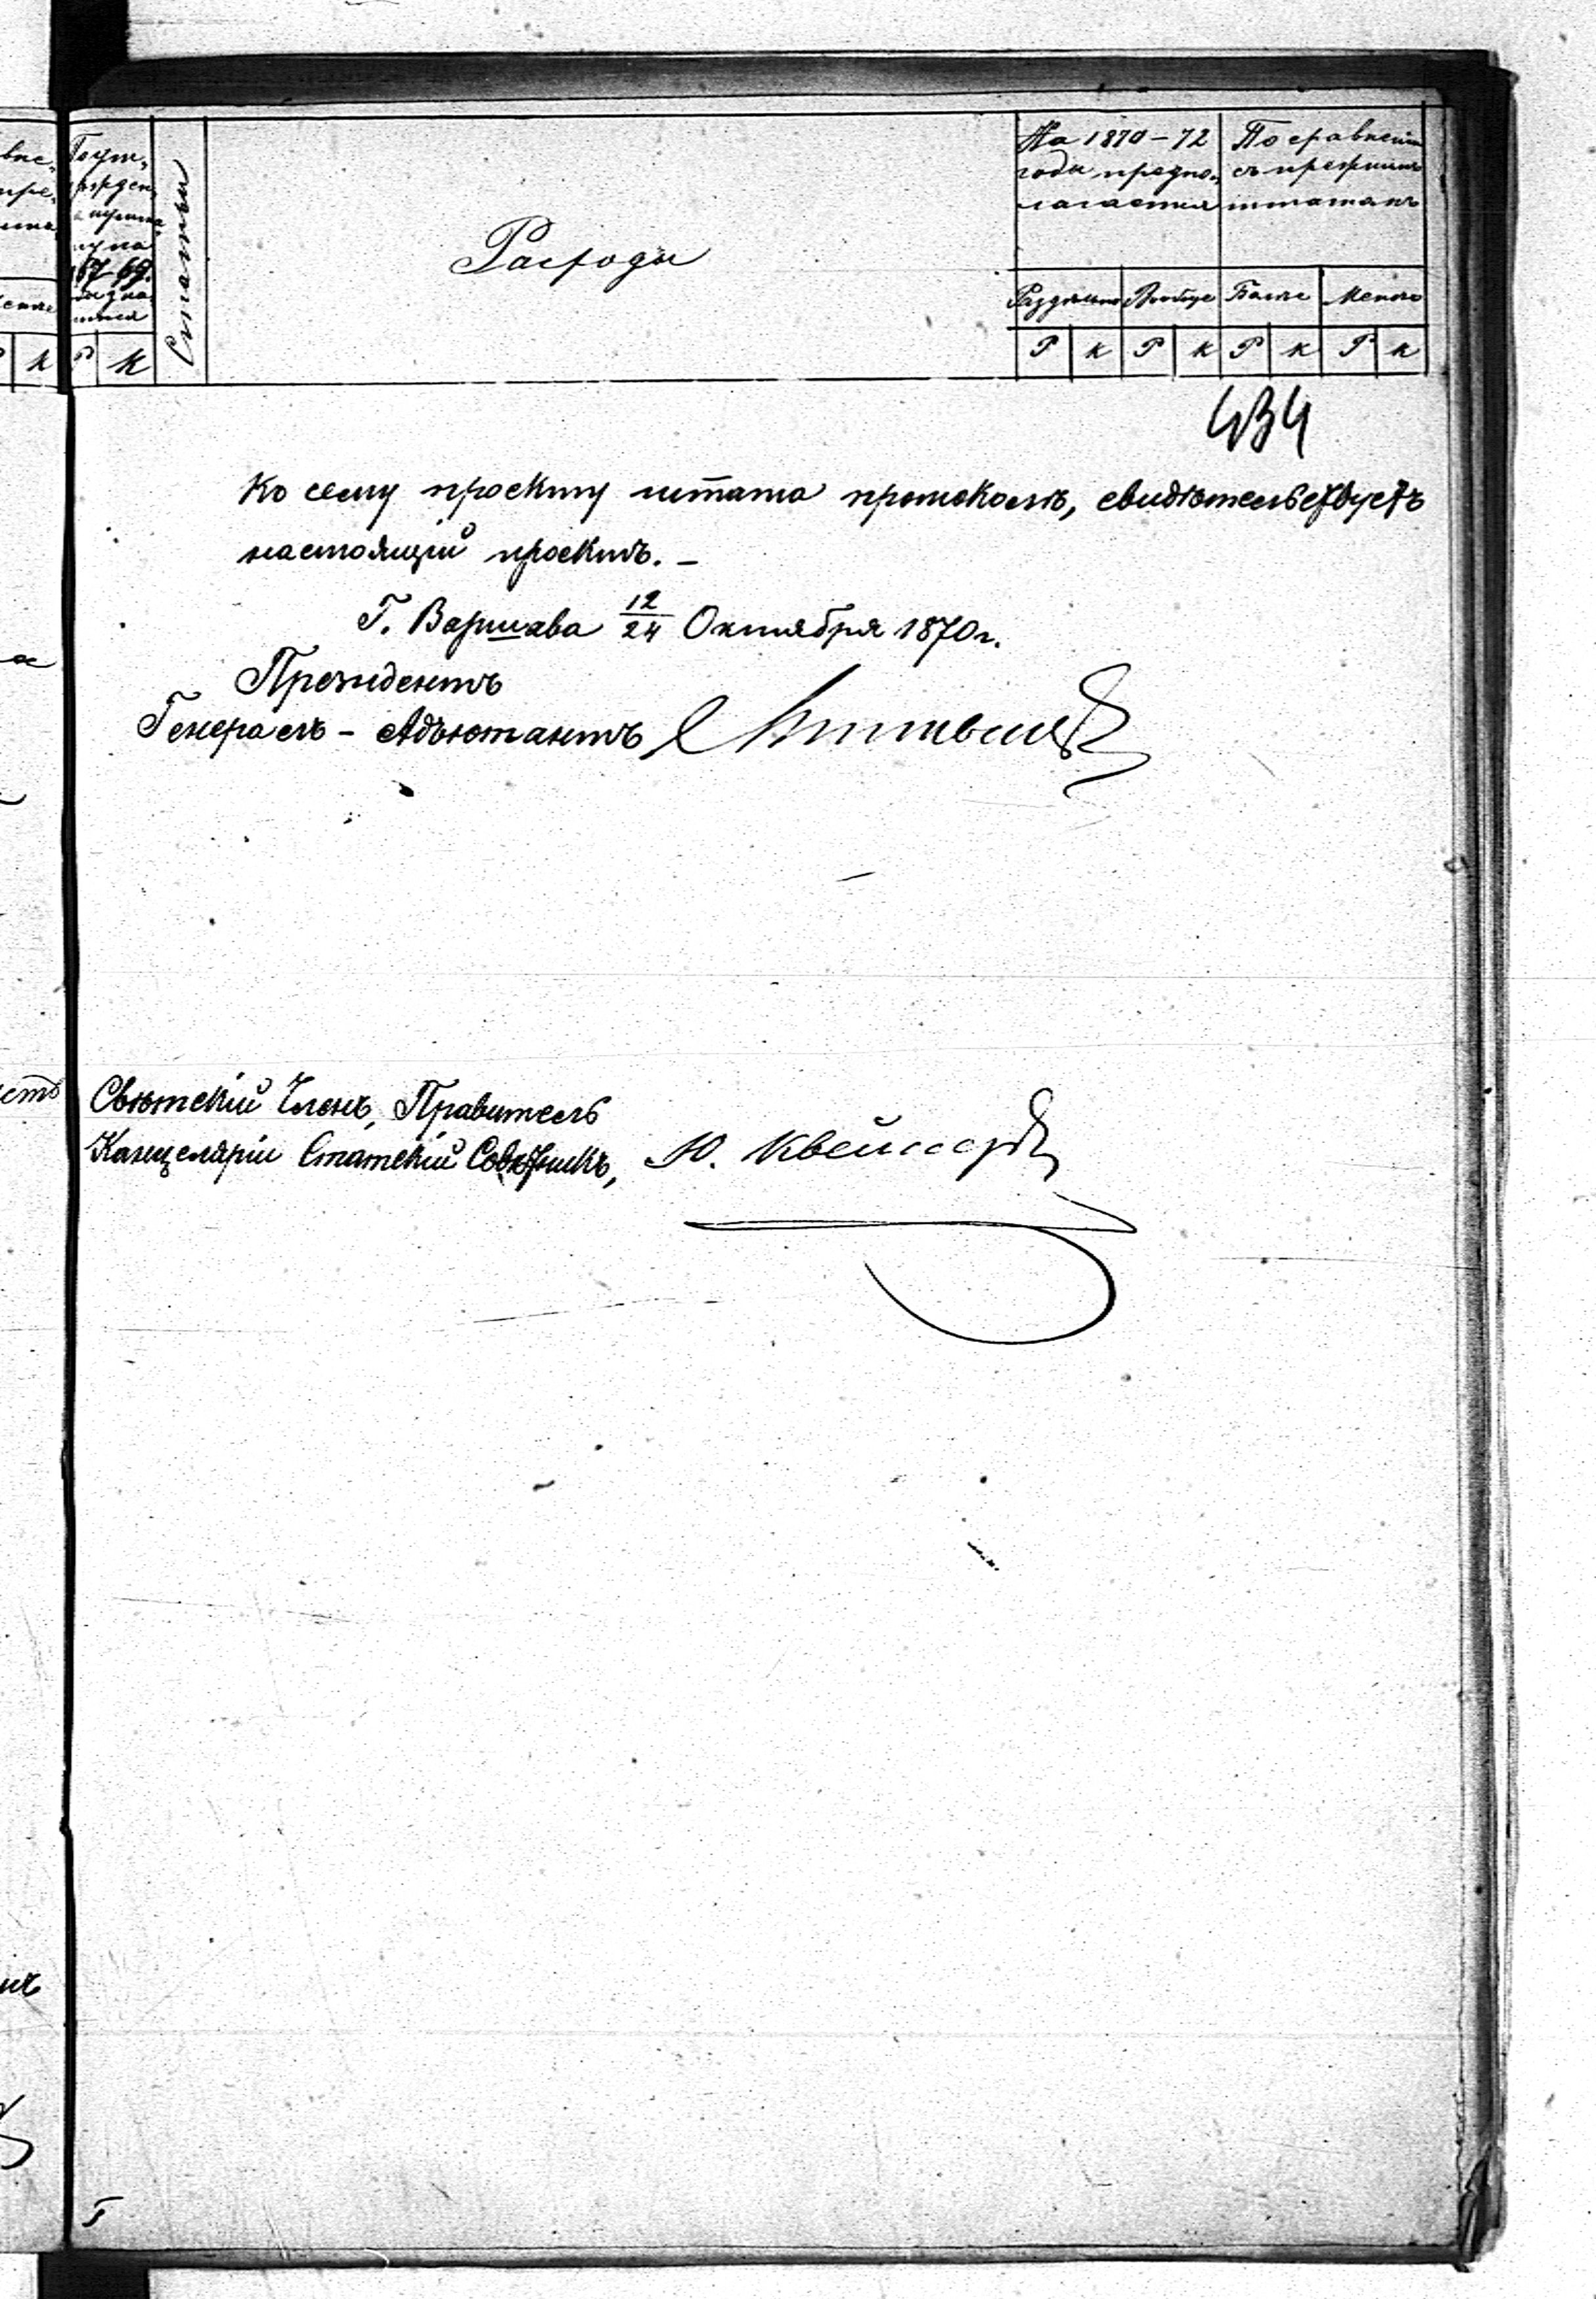 Статьи
Расходы
На 1870-72
годы предпо-
лагается
По сравненiю
съ прежнимъ
штатомъ
Раздѣльно
Вообще
Болѣе
Менѣе
Р К Р К Р К Р К
434
Ко сему проекту штата протоколъ, свидѣтельствуетъ
настоящiй проектъ. –
Г. Варшава 12/24 Октября 1870 г.
Президентъ
Генералъ - Адъютантъ
Свѣтскiй Членъ, Правитель
Канцелярiи Статскiй Совѣтникъ,
Ю.